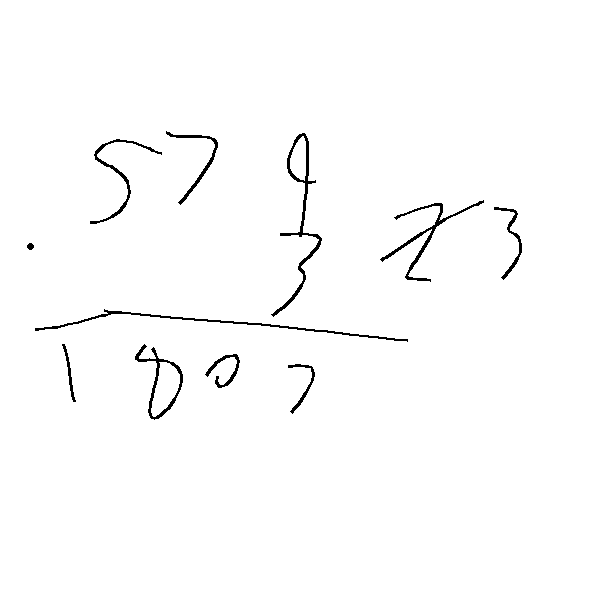 579
. 3 23
1807